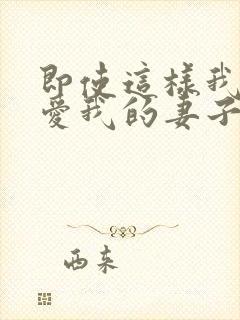 即使這樣我
愛我的妻子
西东